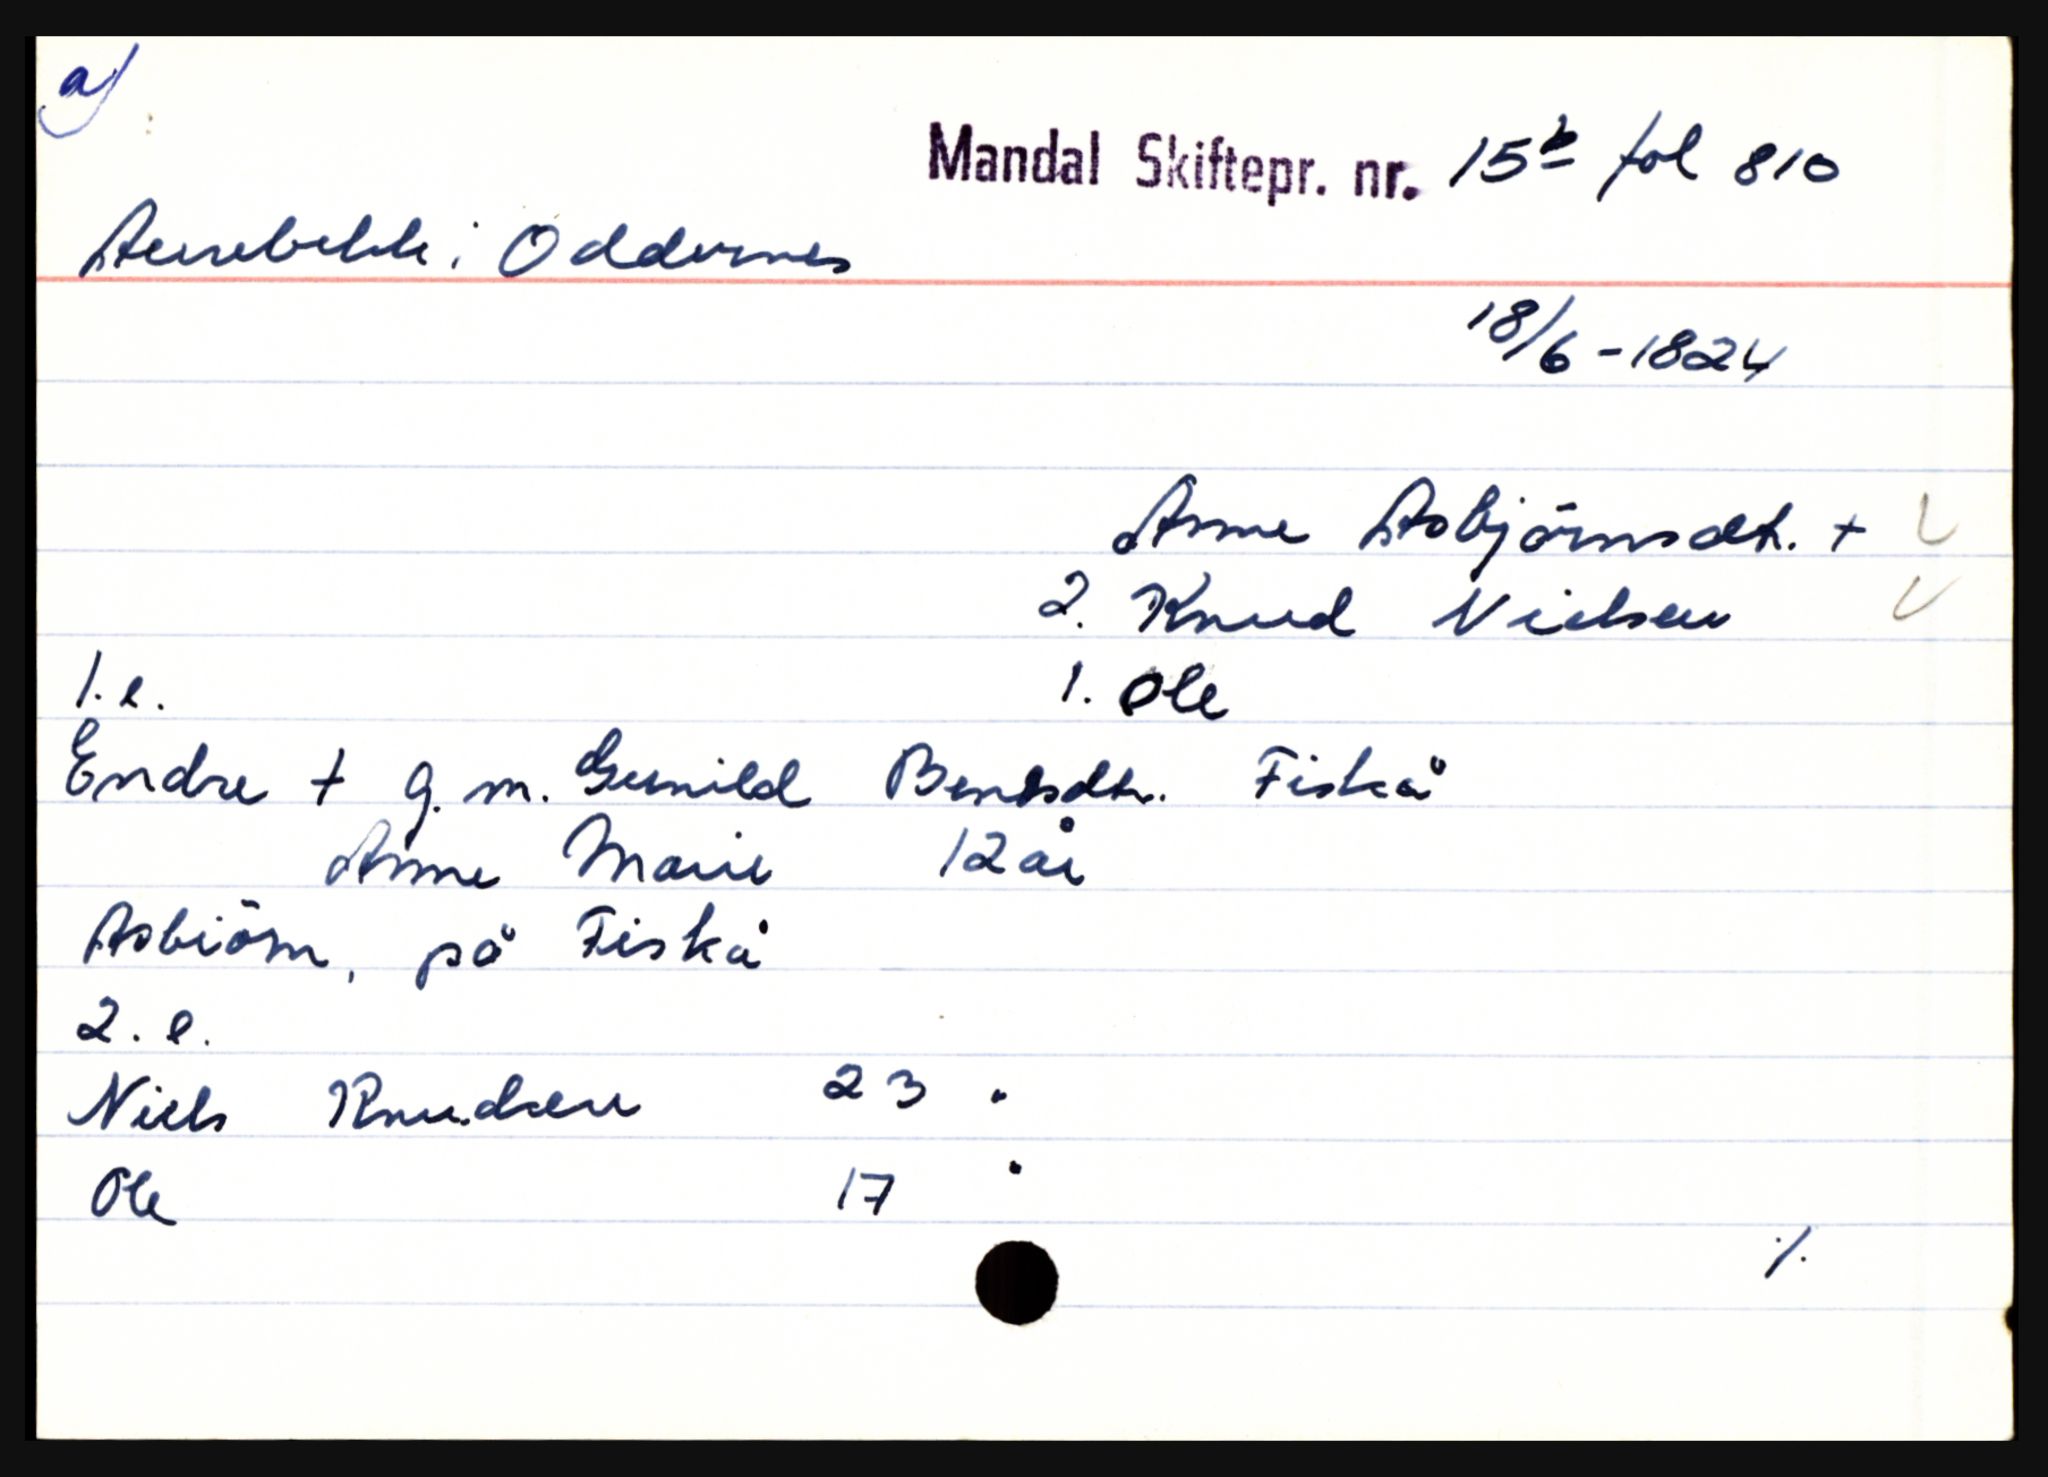 a)
Mandal Skiftepr. nr. 15b fol 810
Aurebekk i Oddernes
18/6-1824
Anne Asbjörnsdt. +
2. Knud Nielsen
1. e. 1. Ole
Endre + g. m. Gunild Bentsdtr. Fiskå
Anne Marie 12 år
Asbiörn, på Fiskå
2. e.
Niels Knudsen 23 "
Ole 17 "
./.